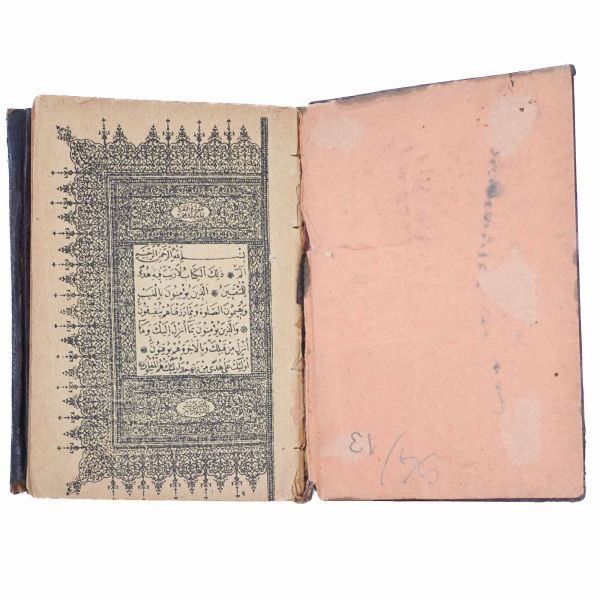 بسم الله الرحمن الرحيم
الم ذلك الكتاب لا ريب فيه هدى
للمتقين الذين يؤمنون بالغيب
ويقيمون الصلوة ومما رزقناهم ينفقون
والذين يؤمنون بما أنزل اليك وما
أنزل من قبلك وبالآخرة هم يوقنون
اولئك على هدى من ربهم واولئك هم المفلحون
13